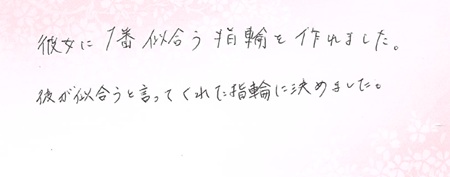 彼女に1番似合う指輪を作れました。
彼が似合うと言ってくれた指輪に決めました。